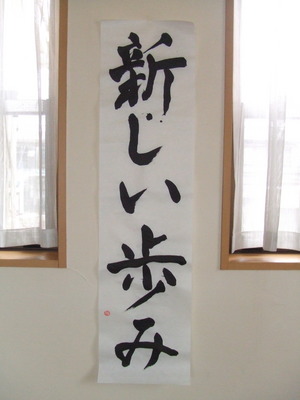 新しい歩み